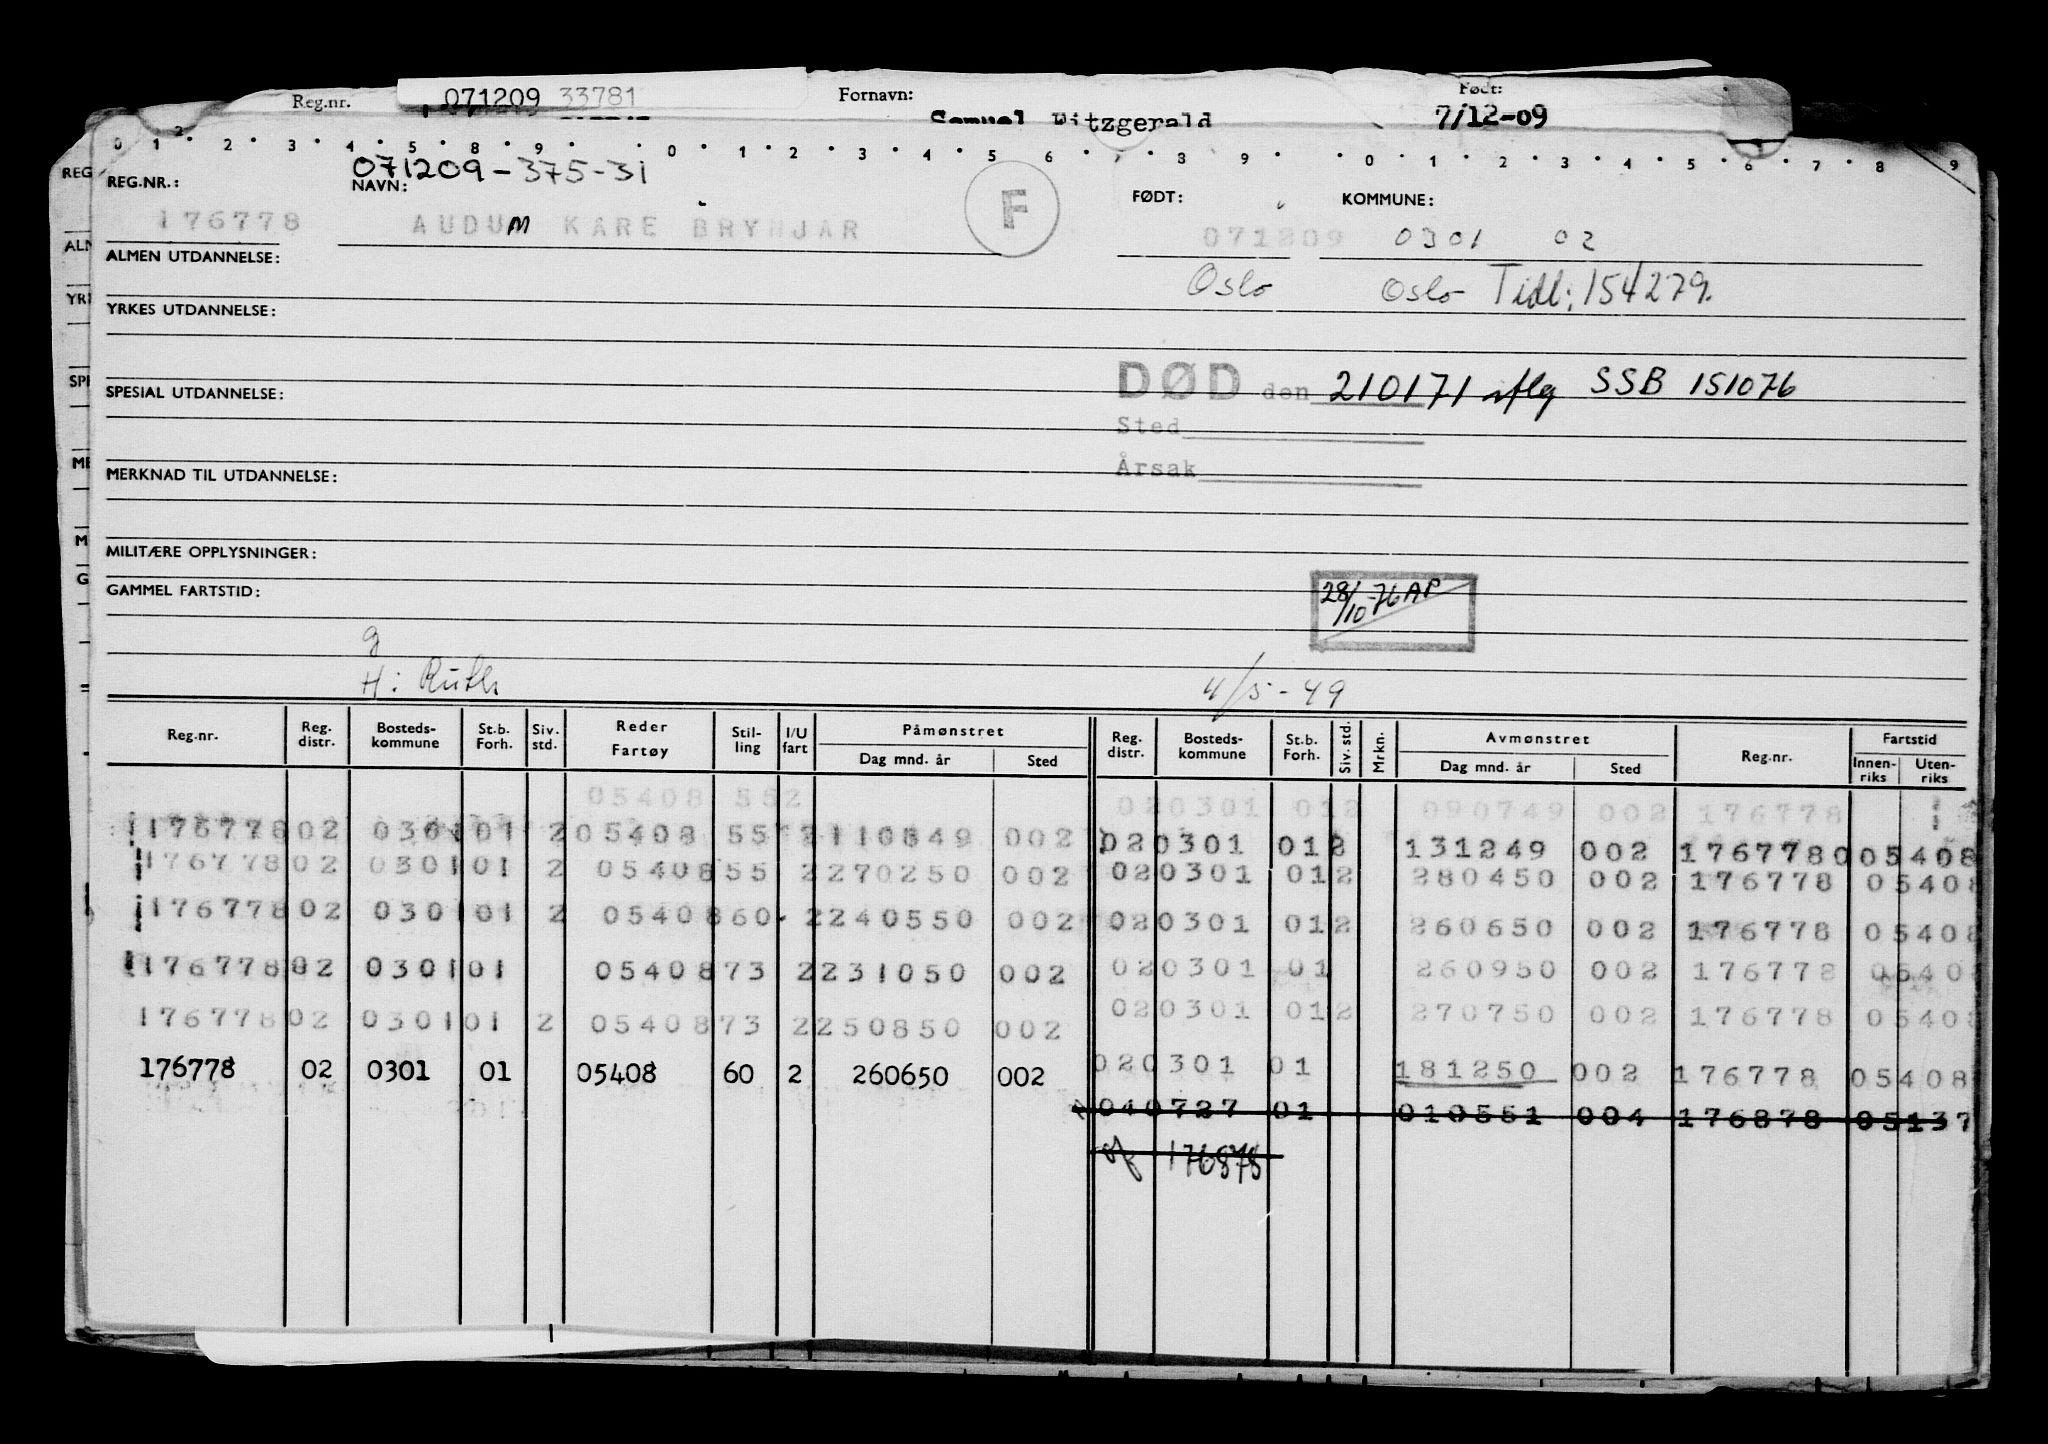 Reg.nr. 071209 33781 Fornavn: Samuel Fitzgerald Født: 7/12-09
0 1 2 3 4 5 8 9 0 1 2 3 4 5 6 7 8 9 0 1 2 3 4 5 6 7 8 9
REG REG.NR.: 071209-375-31 NAVN: F FØDT: KOMMUNE:
176778 AUDUM KARE BRYNJAR 071209 0301 02
ALM ALMEN UTDANNELSE: Oslo Oslo Tidl: 154279.
YRK YRKES UTDANNELSE:
SPE SPESIAL UTDANNELSE: DØD den 210171 iflg SSB 151076
Sted
ME MERKNAD TIL UTDANNELSE: Årsak
M MILITÆRE OPPLYSNINGER:
G GAMMEL FARTSTID: 28/10-76 AP
g
H: Ruth 4/5-49
Reg.nr. Reg. distr. Bosteds-kommune St.b. Forh. Siv. std. Reder Fartøy Stil-ling I/U fart Påmønstret Dag mnd. år Sted Reg. distr. Bosteds-kommune St.b. Forh. Siv. std. Mrkn. Avmønstret Dag mnd. år Sted Reg.nr. Fartstid Innen-riks Uten-riks
05408 552 020301 012 090749 002 176778
176778 02 0301 01 2 05408 55 2 110849 002 020301 012 131249 002 176778 005408
176778 02 0301 01 2 05408 55 2 270250 002 020301 012 280450 002 176778 05408
176778 02 0301 01 2 05408 60 2 240550 002 020301 012 260650 002 176778 05408
176778 02 0301 01 05408 73 2 231050 002 020301 01 260950 002 176778 05408
176778 02 0301 01 2 05408 73 2 250850 002 020301 012 270750 002 176778 05408
176778 02 0301 01 05408 60 2 260650 002 020301 01 181250 002 176778 05408
040727 01 010551 004 176878 05137
176878